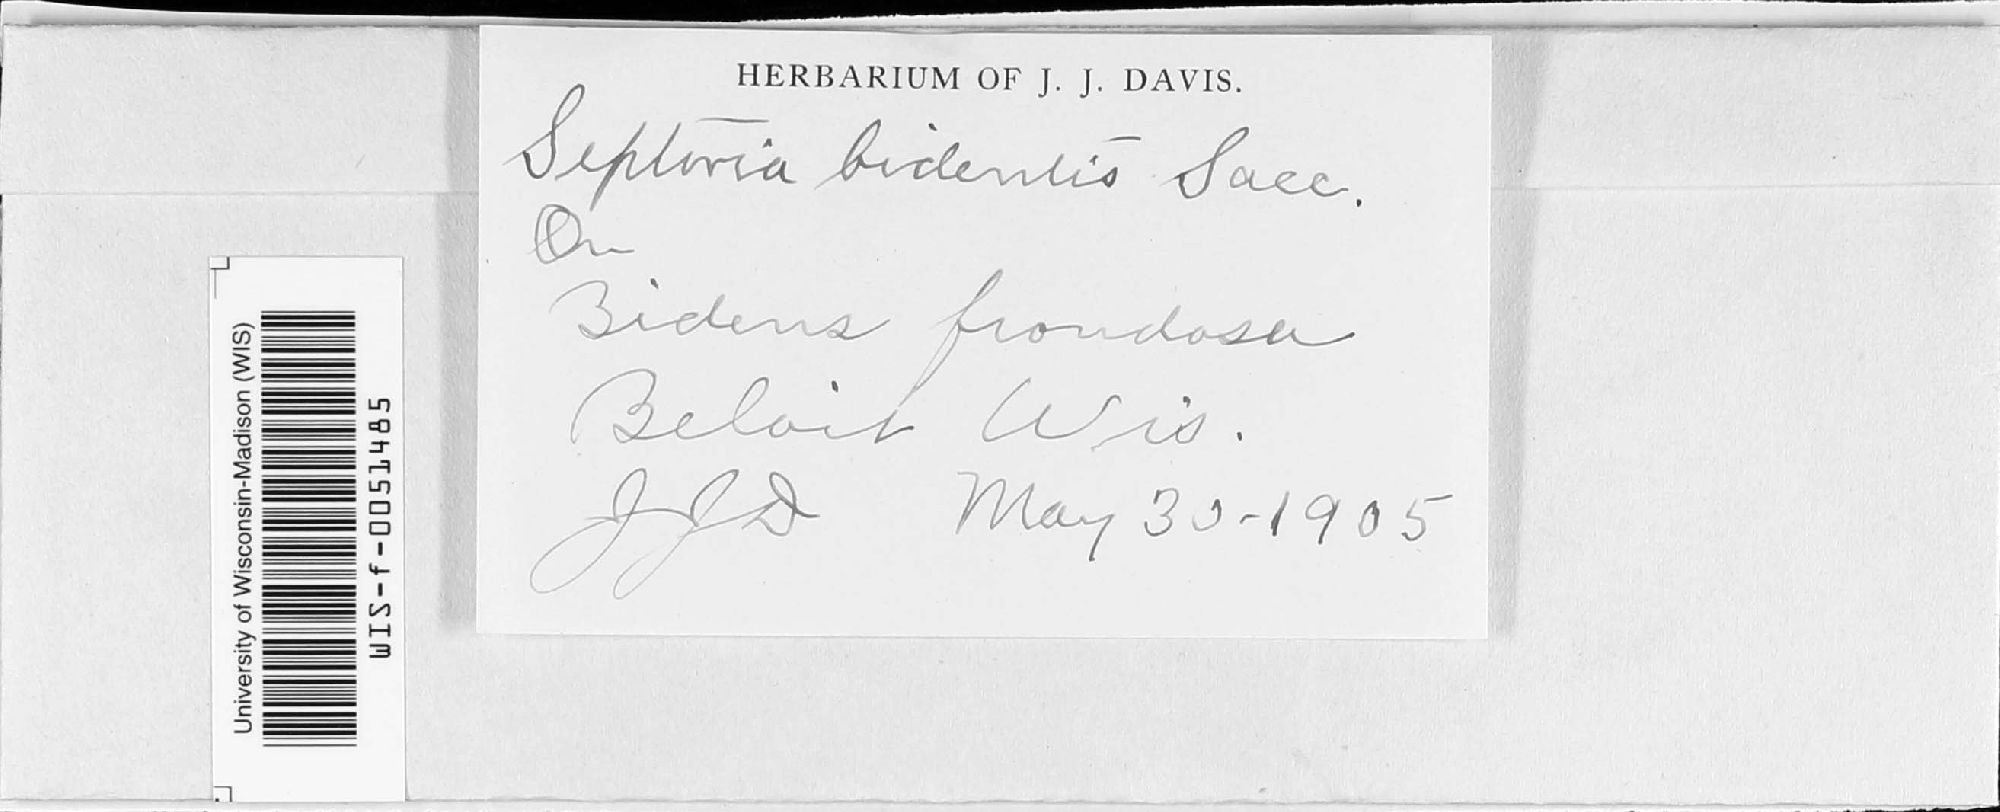 HERBARIUM OF J. J. DAVIS.
Septoria bidentis Sacc.
On
Bidens frondosa
Beloit Wis.
JJD May 30-1905
University of Wisconsin-Madison (WIS)
WIS-f-0051485